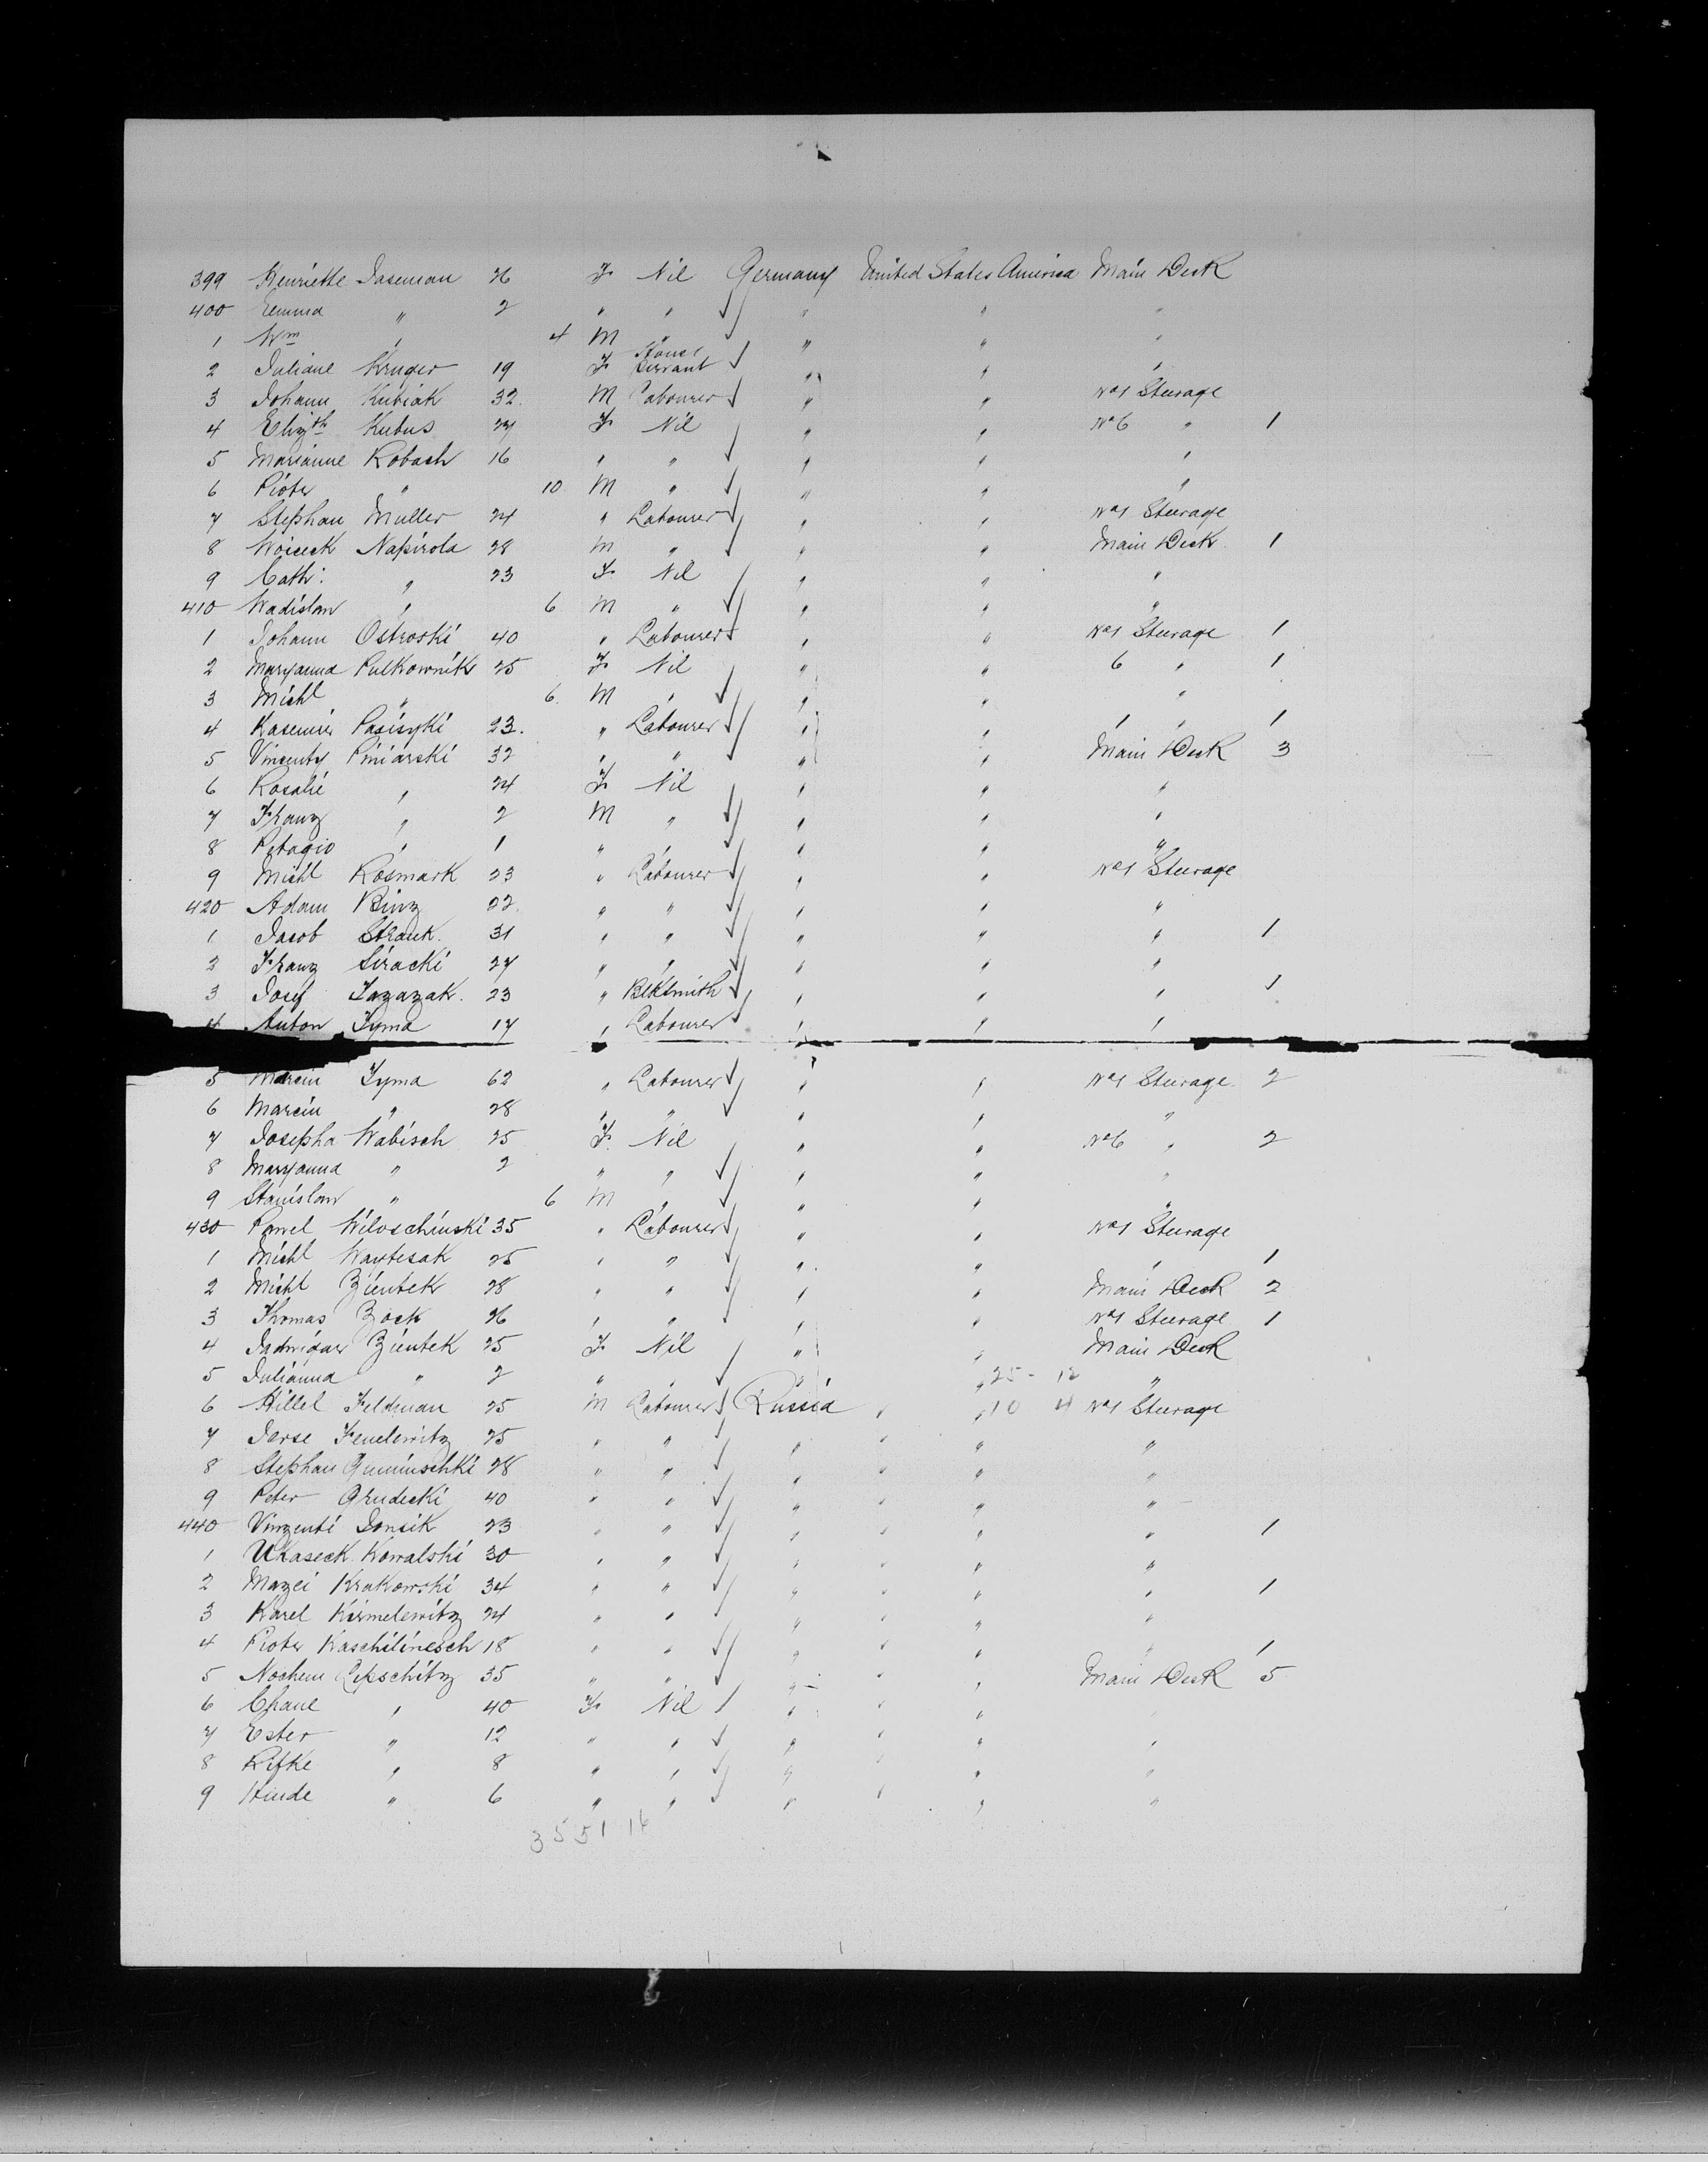 399 Henriette Daseman 26 F Nil Germany United States America Main Deck
400 Emma " 2 " " " " "
1 Wm " 4 M " " " "
2 Juliane Kruger 19 F House Servant " " "
3 Johann Kubiak 32 M Labourer " " No1 Steerage
4 Elizth Kubus 27 F Nil " " No6 " 1
5 Marianne Robach 16 " " " " "
6 Pioter " 10 M " " " "
7 Stephan Muller 24 " Labourer " " No1 Steerage
8 Woiceck Napirola 28 M " " " Main Deck 1
9 Cath: " 23 F Nil " " "
410 Wadislaw " 6 M " " " "
1 Johann Ostroski 40 " Labourer " " No1 Steerage 1
2 Maryanna Pulkownik 25 F Nil " " 6 " 1
3 Michl " 6 M " " " "
4 Kasemir 23 " Labourer " " " " 1
5 Vincenty Piniarski 32 " " " " Main Deck 3
6 Rosalie " 24 F Nil " " "
7 Franz " 2 M " " " "
8 Petagio " 1 " " " " "
9 Michl Rosmark 23 " Labourer " " No1 Steerage
420 Adam Binz 22 " " " " "
1 Jacob Strauk 31 " " " " " 1
2 Franz Siracki 27 " " " " "
3 Josef Jazazak 23 " Blksmith " " " 1
4 Anton Tyma 17 " Labourer " " "
5 Marcin Tyma 62 " Labourer " " No1 Steerage 2
6 Marcin " 28 " " " " "
7 Josepha Wabisch 25 F Nil " " No6 " 2
8 Maryanna " 2 " " " " "
9 Stanislaw " 6 M " " " "
430 Pawel Wiloschinski 35 " Labourer " " No1 Steerage
1 Michl Waytesak 25 " " " " " 1
2 Michl Zientek 28 " " " " Main Deck 2
3 Thomas Zock 26 " " " " No1 Steerage 1
4 Jadwigar Zientek 25 F Nil " " Main Deck
5 Julianna " 2 " " " " 25 - 12 "
6 Hillel Feldman 25 M Labourer Russia " " 10 4 No1 Steerage
7 Jerse Fenelewitz 25 " " " " " "
8 Stephan Guminschki 28 " " " " " "
9 Peter Grudecki 40 " " " " " "
440 Vinzenti Jonsik 23 " " " " " " 1
1 Ukaseck Kowalski 30 " " " " " "
2 Mazei Krakowski 34 " " " " " " 1
3 Karel Kirmelewitz 24 " " " " " "
4 Pioter Kaschilinesch 18 " " " " " " 1
5 Nochem Lipschitz 35 " " " " " Main Deck 5
6 Chane " 40 F Nil " " " "
7 Ester " 12 " " " " " "
8 Rifke " 8 " " " " " "
9 Hinde " 6 " " " " " "
35 51 16